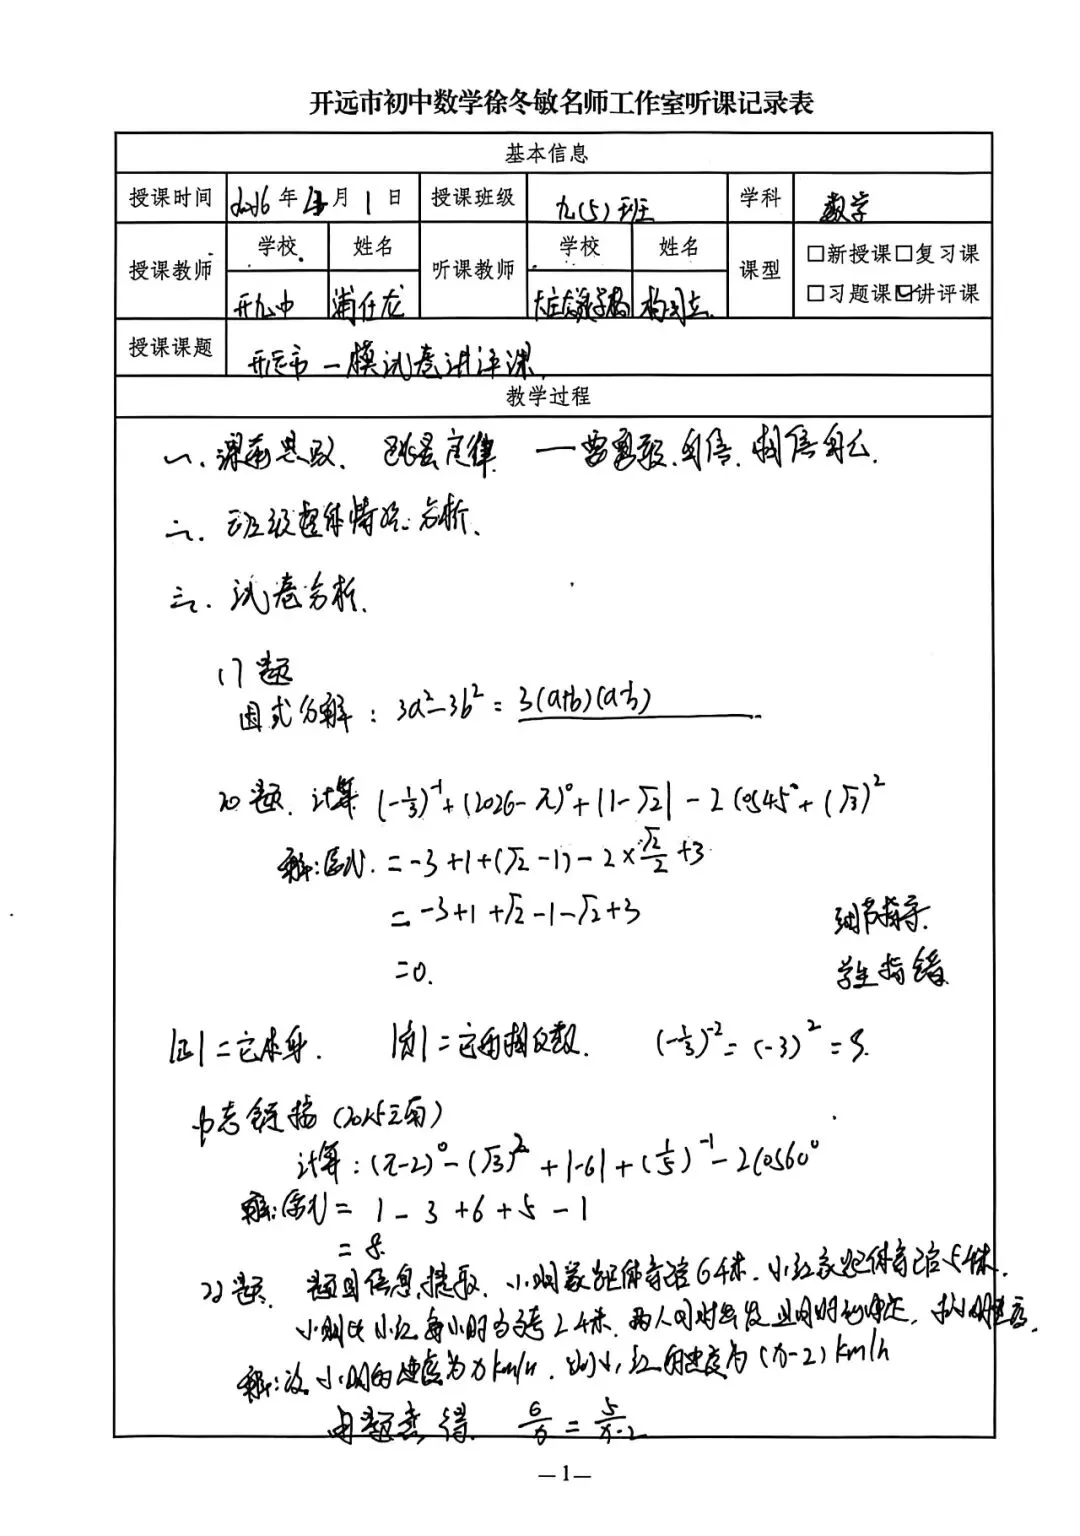 开远市初中数学徐冬敏名师工作室听课记录表
基本信息
授课时间 2026年 月1日 授课班级 九(5)班 学科 数学
授课教师 学校 姓名 听课教师 学校 姓名 课型 □新授课□复习课
□习题课☑讲评课
开九中
授课课题 开远市一模试卷讲评课
教学过程
一、课前思政、跳蚤定律 自信、相信自己.
二、班级整体情况分析.
三、试卷分析.
17题
因式分解：3a²-3b²=3(a+b)(a-b)
20题、计算 (-1/3)⁻¹+(2026-π)⁰+|1-√2|-2cos45°+(√3)²
解:原式=-3+1+(√2-1)-2×√2/2+3
=-3+1+√2-1-√2+3
=0.
细节指导.
学生指错
|正|=它本身. |负|=它的相反数. (-1/3)⁻²=(-3)²=9.
中考链接(2025云南)
计算:(π-2)⁰-(√3)²+|-6|+(1/5)⁻¹-2cos60°
解:原式=1-3+6+5-1
=8.
22题、题目信息提取、小明家距体育馆6千米、小红家距体育馆5千米.
小明比小红每小时多骑2千米.两人同时出发且同时到達,求小明速度.
解:设小明的速度为xkm/h,则小红的速度为(x-2)km/h
由题意得 6/x=5/x-2
—1—